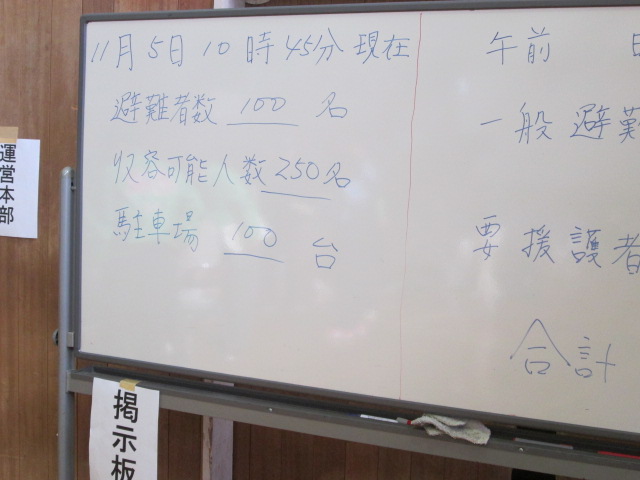 11月5日10時45分現在
避難者数 100 名
収容可能人数 250名
駐車場 100 台
午前 日
一般避難
要援護者
合計
運営本部
掲示板